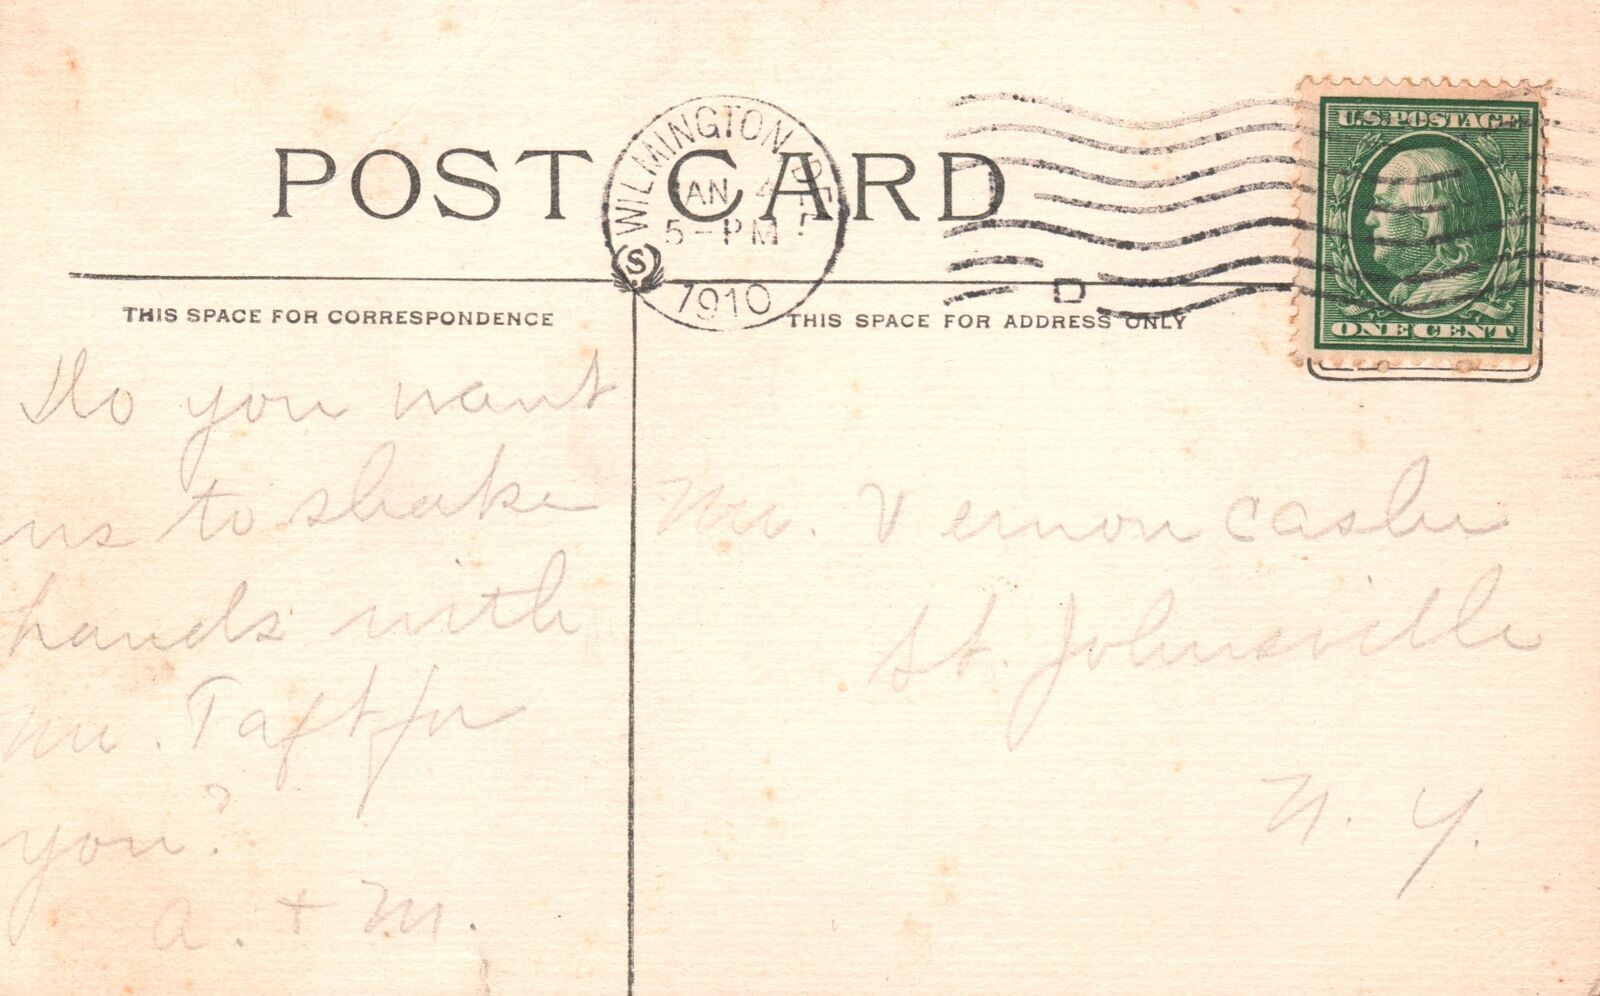 POST CARD
WILMINGTON, DEL
JAN 4
5-PM
1910
S
D
U.S.POSTAGE
ONE CENT
THIS SPACE FOR CORRESPONDENCE
THIS SPACE FOR ADDRESS ONLY
Do you want
us to shake
hands with
Mr. Taft for
you?
A. + M.
Mr. Vernon Casler
St. Johnsville
N. Y.